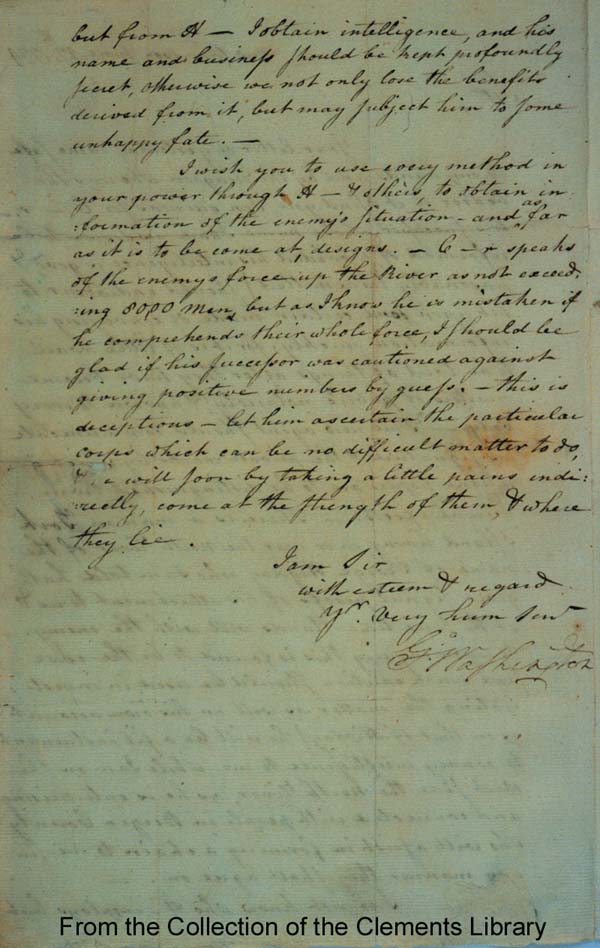 but from H — I obtain intelligence, and his
name and businefs should be kept profoundly
secret, otherwise we not only lose the benefits
derived from it, but may subject him to some
unhappy fate. —
I wish you to use every method in
your power through H — & others to obtain in
:formation of the enemy's situation - and as far
as it is to be come at, designs. — C — r speaks
of the enemys force up the River as not exceed:
:ing 8000 men, but as I know he is mistaken if
he comprehends their whole force, I should be
glad if his succefsor was cautioned against
giving positive numbers by guefs. — this is
deceptious — let him ascertain the particular
corps which can be no difficult matter to do,
& will soon by taking a little pains indi:
:rectly, come at the strength of them, & where
they lie.
I am Sir
with esteem & regard
Yr. very hum Serv
Go: Washington
From the Collection of the Clements Library